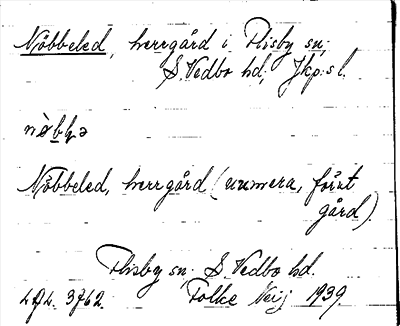 Nöbbeled, herrgård i Flisby sn,
S. Vedbo hd, Jkp:s l.
Nöbbeled, herrgård (numera, förut
gård).
Flisby sn, S. Vedbo hd.
3762. Folke Neij 1939.